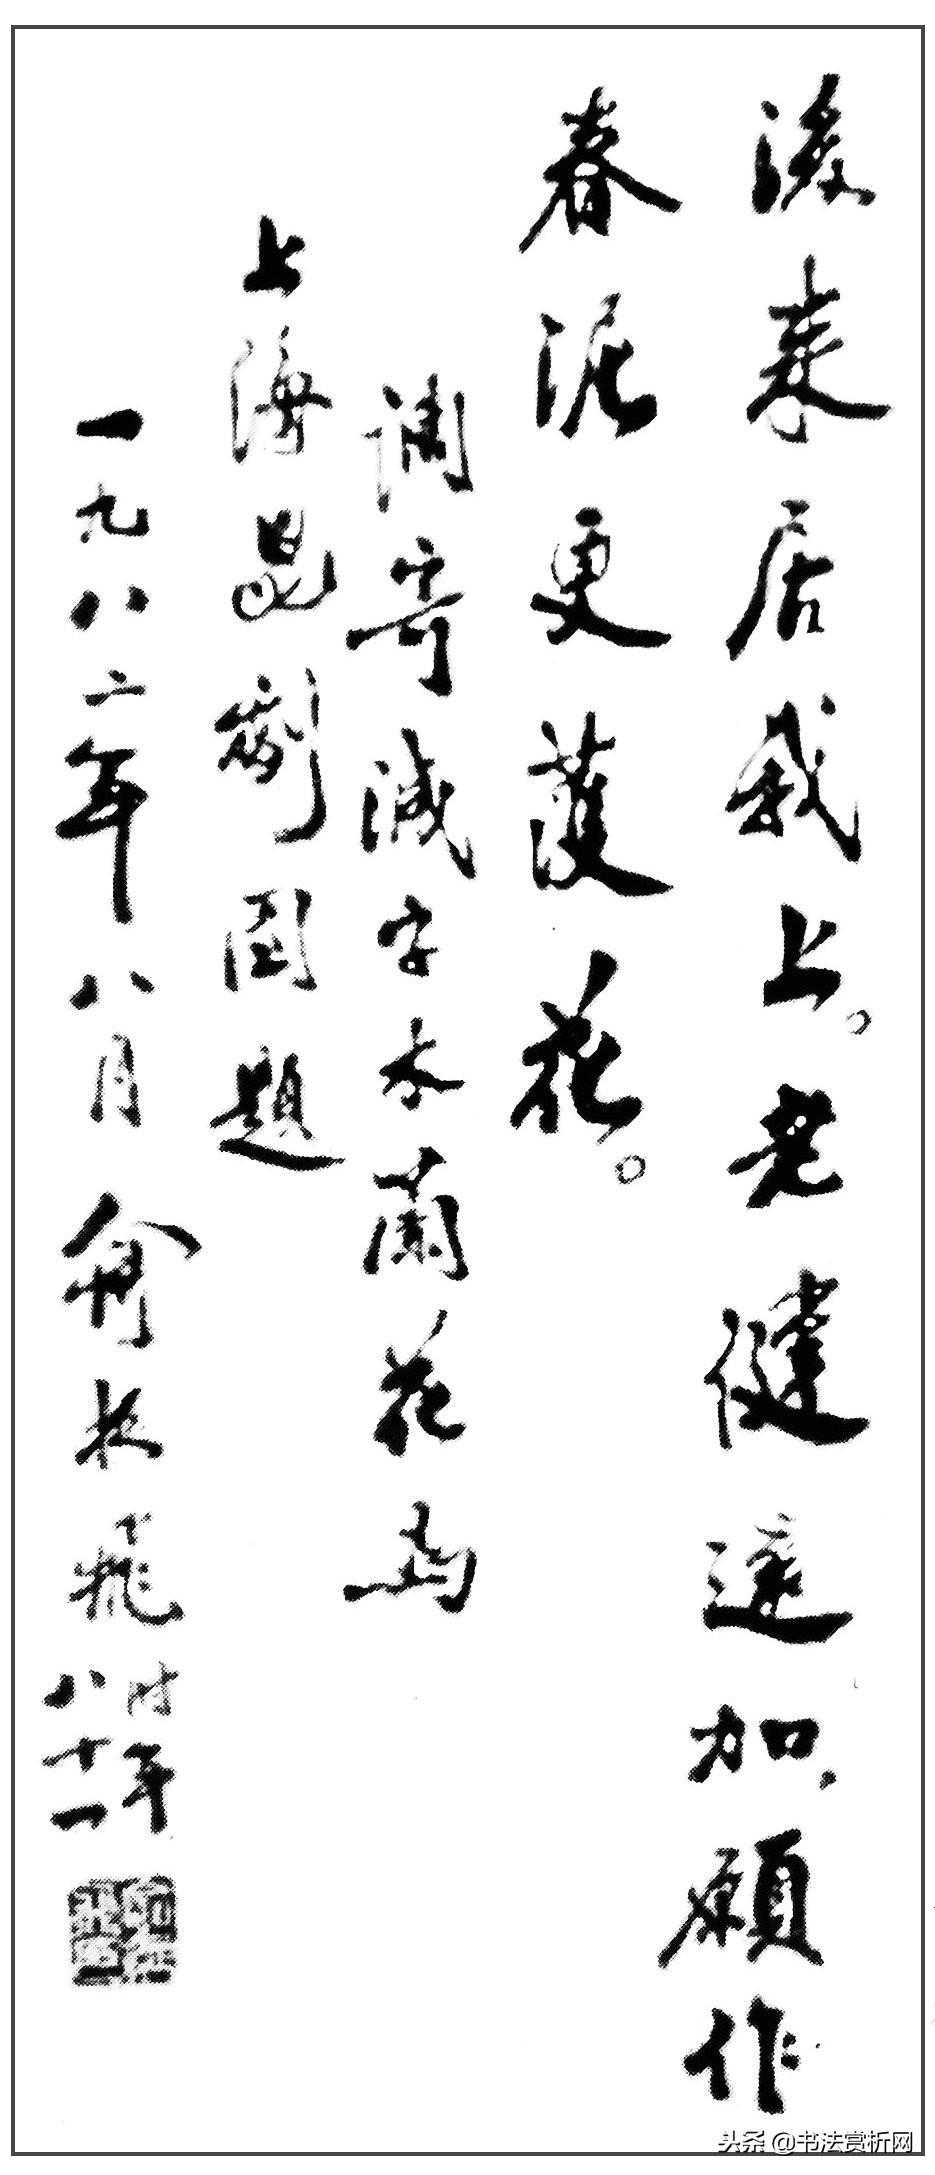 後来居我上。老健還加，願作
春泥更護花。
調寄減字木蘭花為
上海崑劇團題
一九八二年八月俞振飛
时年
八十一
头条 @书法赏析网